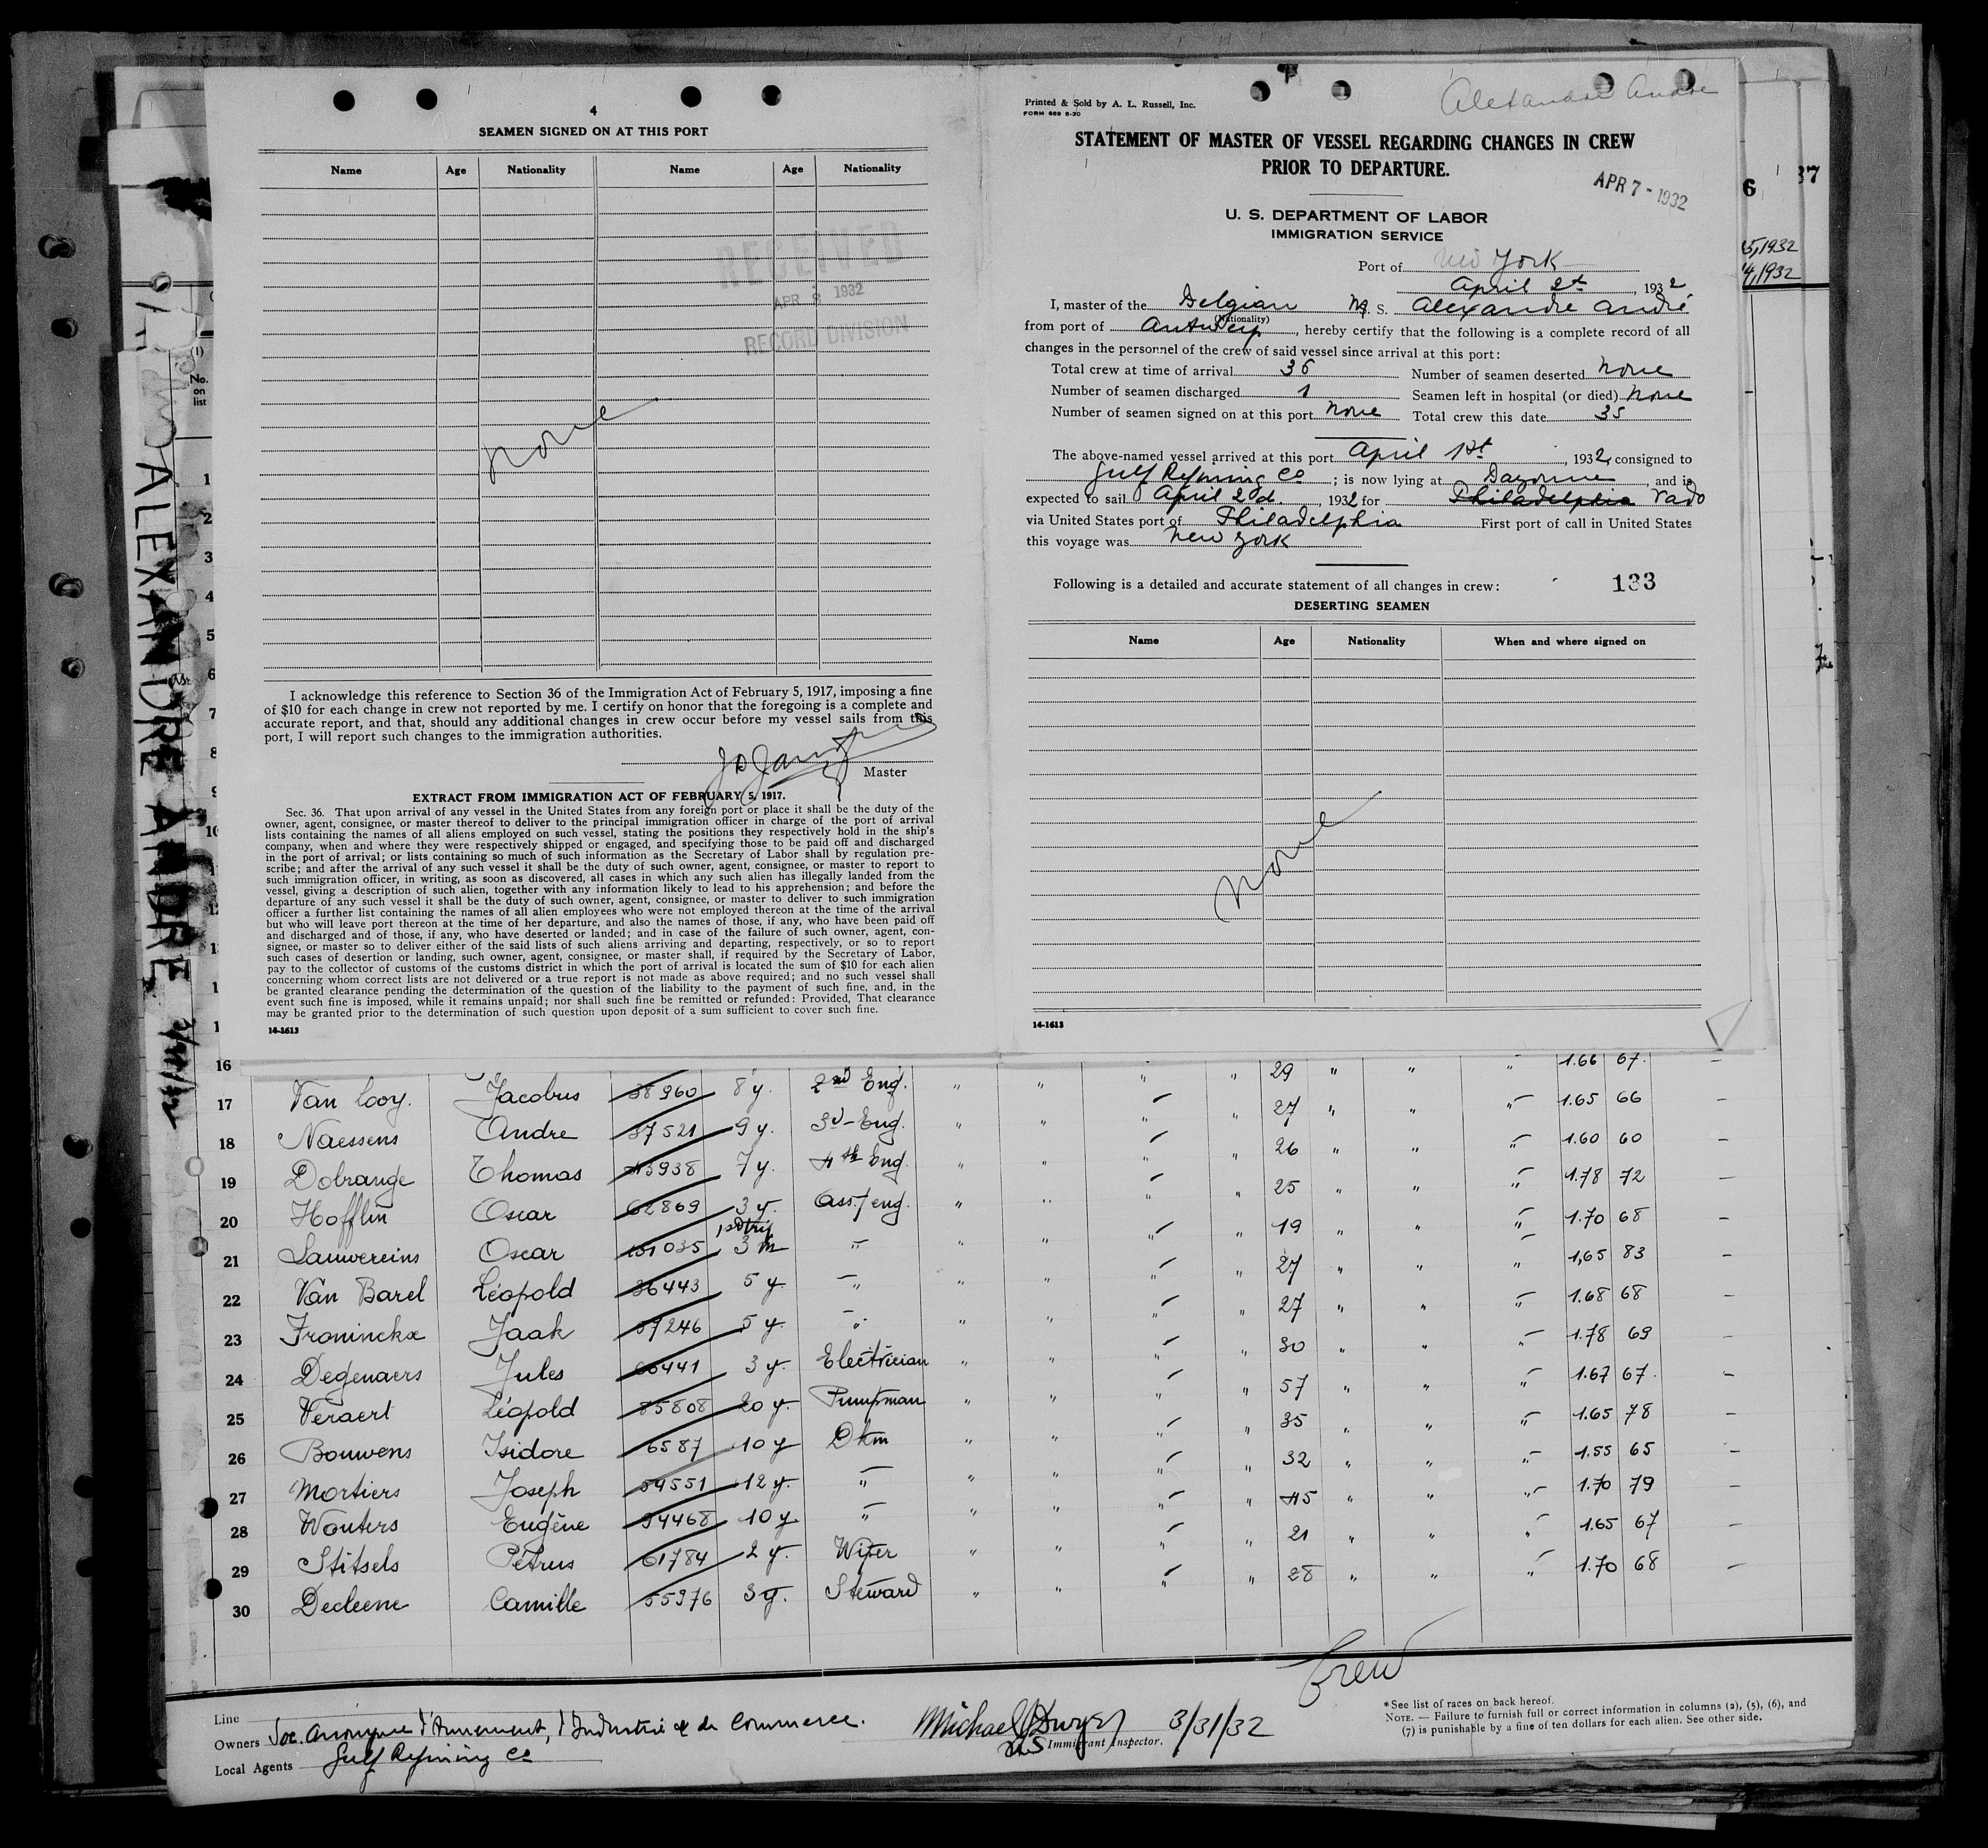 4
SEAMEN SIGNED ON AT THIS PORT
Name Age Nationality Name Age Nationality
RECEIVED
APR 1932
RECORD DIVISION
None
I acknowledge this reference to Section 36 of the Immigration Act of February 5, 1917, imposing a fine
of $10 for each change in crew not reported by me. I certify on honor that the foregoing is a complete and
accurate report, and that, should any additional changes in crew occur before my vessel sails from this
port, I will report such changes to the immigration authorities.
Master
EXTRACT FROM IMMIGRATION ACT OF FEBRUARY 5, 1917.
Sec. 36. That upon arrival of any vessel in the United States from any foreign port or place it shall be the duty of the
owner, agent, consignee, or master thereof to deliver to the principal immigration officer in charge of the port of arrival
lists containing the names of all aliens employed on such vessel, stating the positions they respectively hold in the ship's
company, when and where they were respectively shipped or engaged, and specifying those to be paid off and discharged
in the port of arrival; or lists containing so much of such information as the Secretary of Labor shall by regulation pre-
scribe; and after the arrival of any such vessel it shall be the duty of such owner, agent, consignee, or master to report to
such immigration officer, in writing, as soon as discovered, all cases in which any such alien has illegally landed from the
vessel, giving a description of such alien, together with any information likely to lead to his apprehension; and before the
departure of any such vessel it shall be the duty of such owner, agent, consignee, or master to deliver to such immigration
officer a further list containing the names of all alien employees who were not employed thereon at the time of the arrival
but who will leave port thereon at the time of her departure, and also the names of those, if any, who have been paid off
and discharged and of those, if any, who have deserted or landed; and in case of the failure of such owner, agent, con-
signee, or master so to deliver either of the said lists of such aliens arriving and departing, respectively, or so to report
such cases of desertion or landing, such owner, agent, consignee, or master shall, if required by the Secretary of Labor,
pay to the collector of customs of the customs district in which the port of arrival is located the sum of $10 for each alien
concerning whom correct lists are not delivered or a true report is not made as above required; and no such vessel shall
be granted clearance pending the determination of the question of the liability to the payment of such fine, and, in the
event such fine is imposed, while it remains unpaid; nor shall such fine be remitted or refunded: Provided, That clearance
may be granted prior to the determination of such question upon deposit of a sum sufficient to cover such fine.
14-1613
Alexandre André
Printed & Sold by A. L. Russell, Inc.
FORM 689 6-30
STATEMENT OF MASTER OF VESSEL REGARDING CHANGES IN CREW
PRIOR TO DEPARTURE.
APR 7 - 1932
U. S. DEPARTMENT OF LABOR
IMMIGRATION SERVICE
Port of New York
April 2d, 1932
I, master of the Belgian M. S. Alexandre André
(Nationality)
from port of Antwerp, hereby certify that the following is a complete record of all
changes in the personnel of the crew of said vessel since arrival at this port:
Total crew at time of arrival 36 Number of seamen deserted None
Number of seamen discharged 1 Seamen left in hospital (or died) None
Number of seamen signed on at this port None Total crew this date 35
The above-named vessel arrived at this port April 1st, 1932, consigned to
Gulf Refining Co; is now lying at Bayonne, and is
expected to sail April 2d, 1932 for Philadelphia Vado
via United States port of Philadelphia First port of call in United States
this voyage was New York
Following is a detailed and accurate statement of all changes in crew: 133
DESERTING SEAMEN
Name Age Nationality When and where signed on
None
14-1613
ALEXANDRE ANDRE
6 37
5,1932
4,1932
(1)
No.
on
list
1
2
3
4
5
6
7
8
16 29 " " " 1.66 67. –
17 Van Looy. Jacobus 38960 8 y. 2nd Eng. " " " " 27 " " " 1.65 66 –
18 Naessens Andre 37521 9 y. 3d-Eng. " " " " 26 " " " 1.60 60 –
19 Dobrange Thomas 43938 7 y. 4th Eng. " " " " 25 " " " 1.78 72 –
20 Hofflin Oscar 62869 3 y. Asst eng. " " " " 19 " " " 1.70 68 –
21 Lauwereins Oscar 101035 1st trip 3 m " " " " " 27 " " " 1,65 83 –
22 Van Barel Léopold 36443 5 y. " " " " " 27 " " " 1.68 68 –
23 Froninckx Jaak 37246 5 y. " " " " " 30 " " " 1.78 69 –
24 Degenaers Jules 66441 3 y. Electrician " " " " 57 " " " 1.67 67. –
25 Veraert Léopold 85808 20 y. Pumpman " " " " 35 " " " 1.65 78 –
26 Bouwens Isidore 6587 10 y Dkm " " " " 32 " " " 1.55 65 –
27 Mortiers Joseph 54551 12 y. " " " " " 45 " " " 1.70 79 –
28 Wouters Eugène 94468 10 y " " " " " 21 " " " 1.65 67 –
29 Stitsels Petrus 61784 2 y. Wiper " " " " 28 " " " 1.70 68 –
30 Decleene Camille 55976 3 y. Steward " "
Crew
Line
Owners Soc. Anonyme d'Armement, d'Industrie & de Commerce.
Local Agents Gulf Refining Co
Michael J Dwyer 3/31/32
US Immigrant Inspector.
*See list of races on back hereof.
NOTE. — Failure to furnish full or correct information in columns (2), (5), (6), and
(7) is punishable by a fine of ten dollars for each alien. See other side.